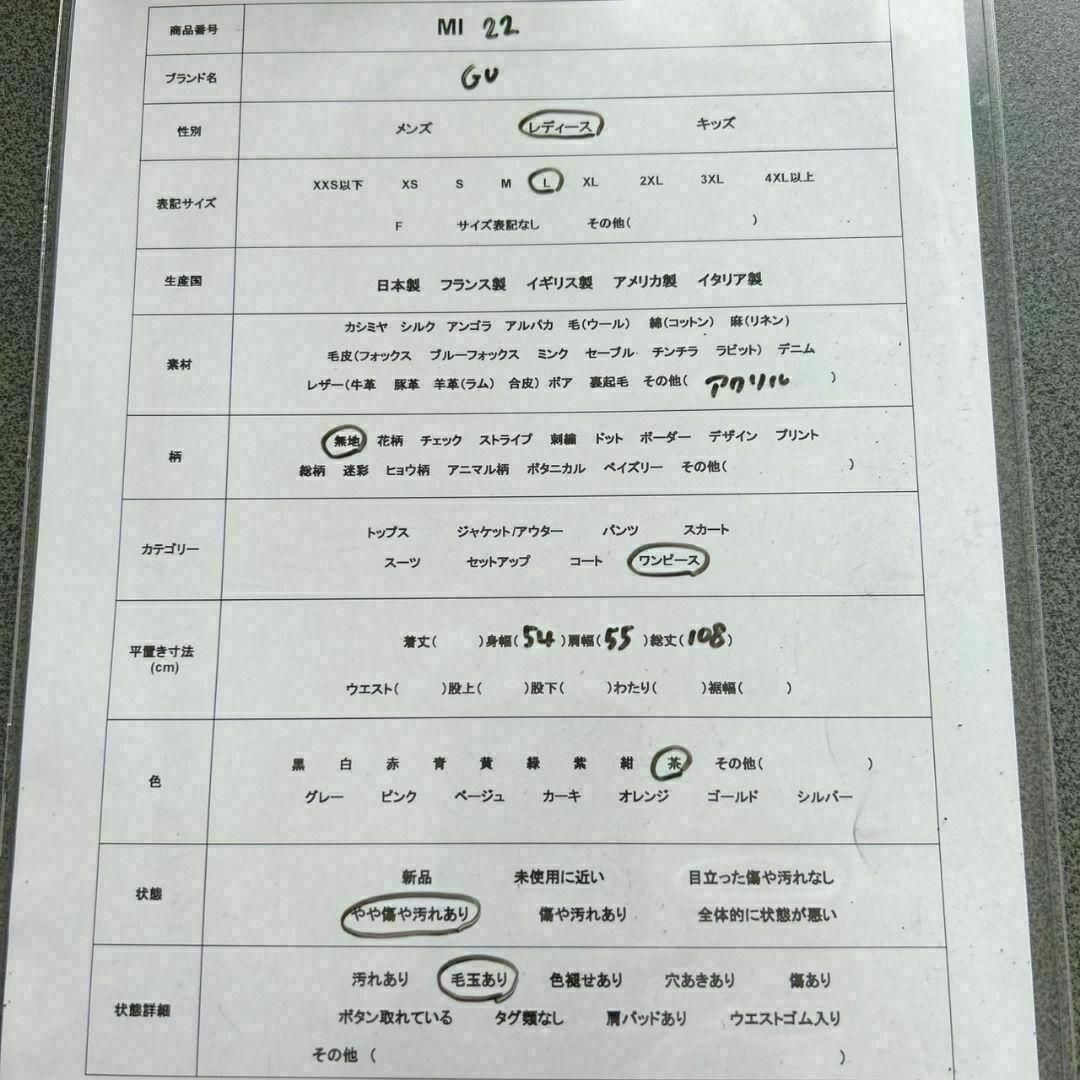 商品番号 MI 22
ブランド名 GU
性別 メンズ レディース キッズ
表記サイズ
XXS以下 XS S M L XL 2XL 3XL 4XL以上
F サイズ表記なし その他( )
生産国 日本製 フランス製 イギリス製 アメリカ製 イタリア製
素材
カシミヤ シルク アンゴラ アルパカ 毛(ウール) 綿(コットン) 麻(リネン)
毛皮(フォックス ブルーフォックス ミンク セーブル チンチラ ラビット) デニム
レザー(牛革 豚革 羊革(ラム) 合皮) ボア 裏起毛 その他( アクリル )
柄
無地 花柄 チェック ストライプ 刺繍 ドット ボーダー デザイン プリント
総柄 迷彩 ヒョウ柄 アニマル柄 ボタニカル ペイズリー その他( )
カテゴリー
トップス ジャケット/アウター パンツ スカート
スーツ セットアップ コート ワンピース
平置き寸法
(cm)
着丈( )身幅( 54 )肩幅( 55 )総丈( 108 )
ウエスト( )股上( )股下( )わたり( )裾幅( )
色
黒 白 赤 青 黄 緑 紫 紺 茶 その他( )
グレー ピンク ベージュ カーキ オレンジ ゴールド シルバー
状態
新品 未使用に近い 目立った傷や汚れなし
やや傷や汚れあり 傷や汚れあり 全体的に状態が悪い
状態詳細
汚れあり 毛玉あり 色褪せあり 穴あきあり 傷あり
ボタン取れている タグ類なし 肩パッドあり ウエストゴム入り
その他 ( )